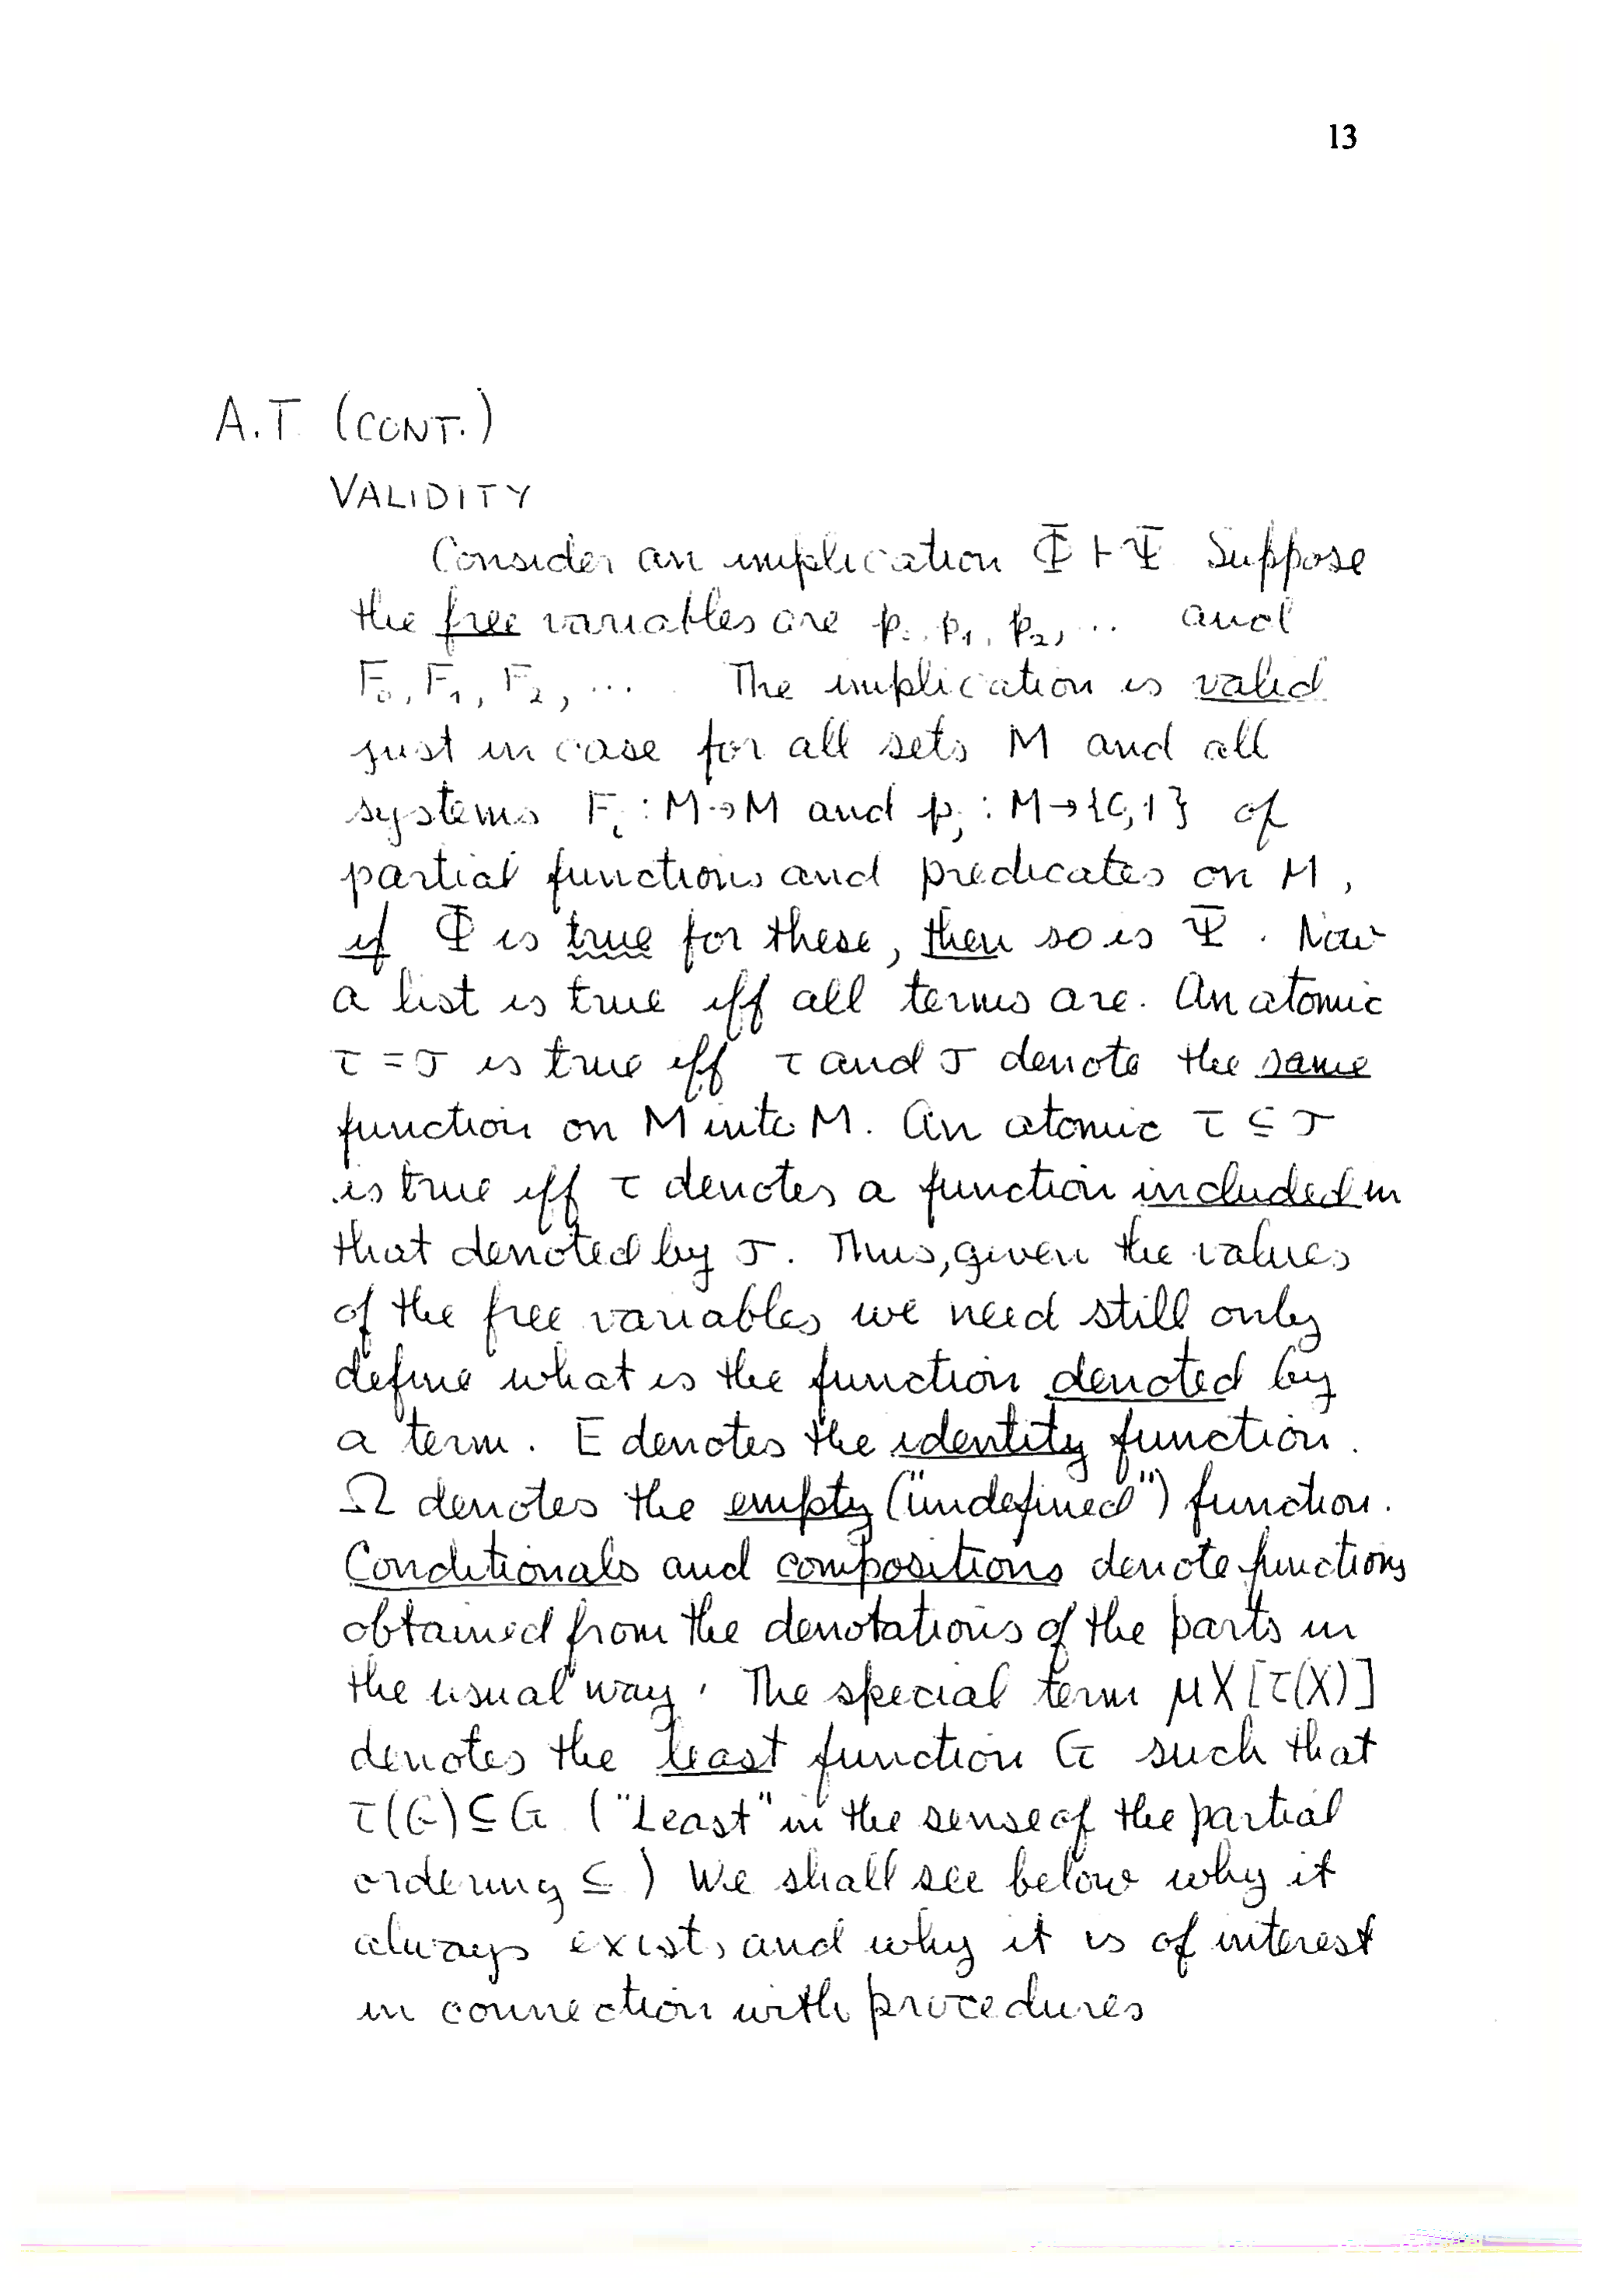 13
A.T. (CONT.)
VALIDITY
Consider an implication Φ ⊢ Ψ. Suppose
the free variables are p₀, p₁, p₂, ... and
F₀, F₁, F₂, ... . The implication is valid
just in case for all sets M and all
systems Fᵢ : M → M and pⱼ : M → {0,1} of
partial functions and predicates on M,
if Φ is true for these, then so is Ψ. Now
a list is true iff all terms are. An atomic
τ = σ is true iff τ and σ denote the same
function on M into M. An atomic τ ⊆ σ
is true iff τ denotes a function included in
that denoted by σ. Thus, given the values
of the free variables we need still only
define what is the function denoted by
a term. E denotes the identity function.
Ω denotes the empty ("undefined") function.
Conditionals and compositions denote functions
obtained from the denotations of the parts in
the usual way. The special term μX[τ(X)]
denotes the least function G such that
τ(G) ⊆ G. ("Least" in the sense of the partial
ordering ⊆.) We shall see below why it
always exists and why it is of interest
in connection with procedures